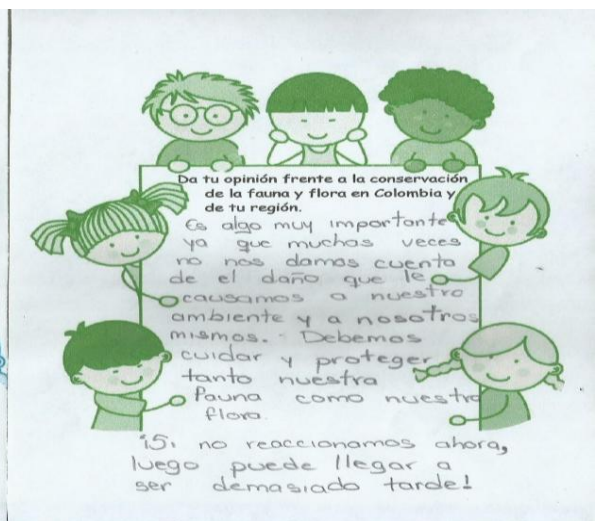 Da tu opinión frente a la conservación
de la fauna y flora en Colombia y
de tu región.
Es algo muy importante
ya que muchas veces
no nos damos cuenta
de el daño que le
causamos a nuestro
ambiente y a nosotros
mismos. Debemos
cuidar y proteger
tanto nuestra
Fauna como nuestra
flora.
¡Si no reaccionamos ahora,
luego puede llegar a
ser demasiado tarde!